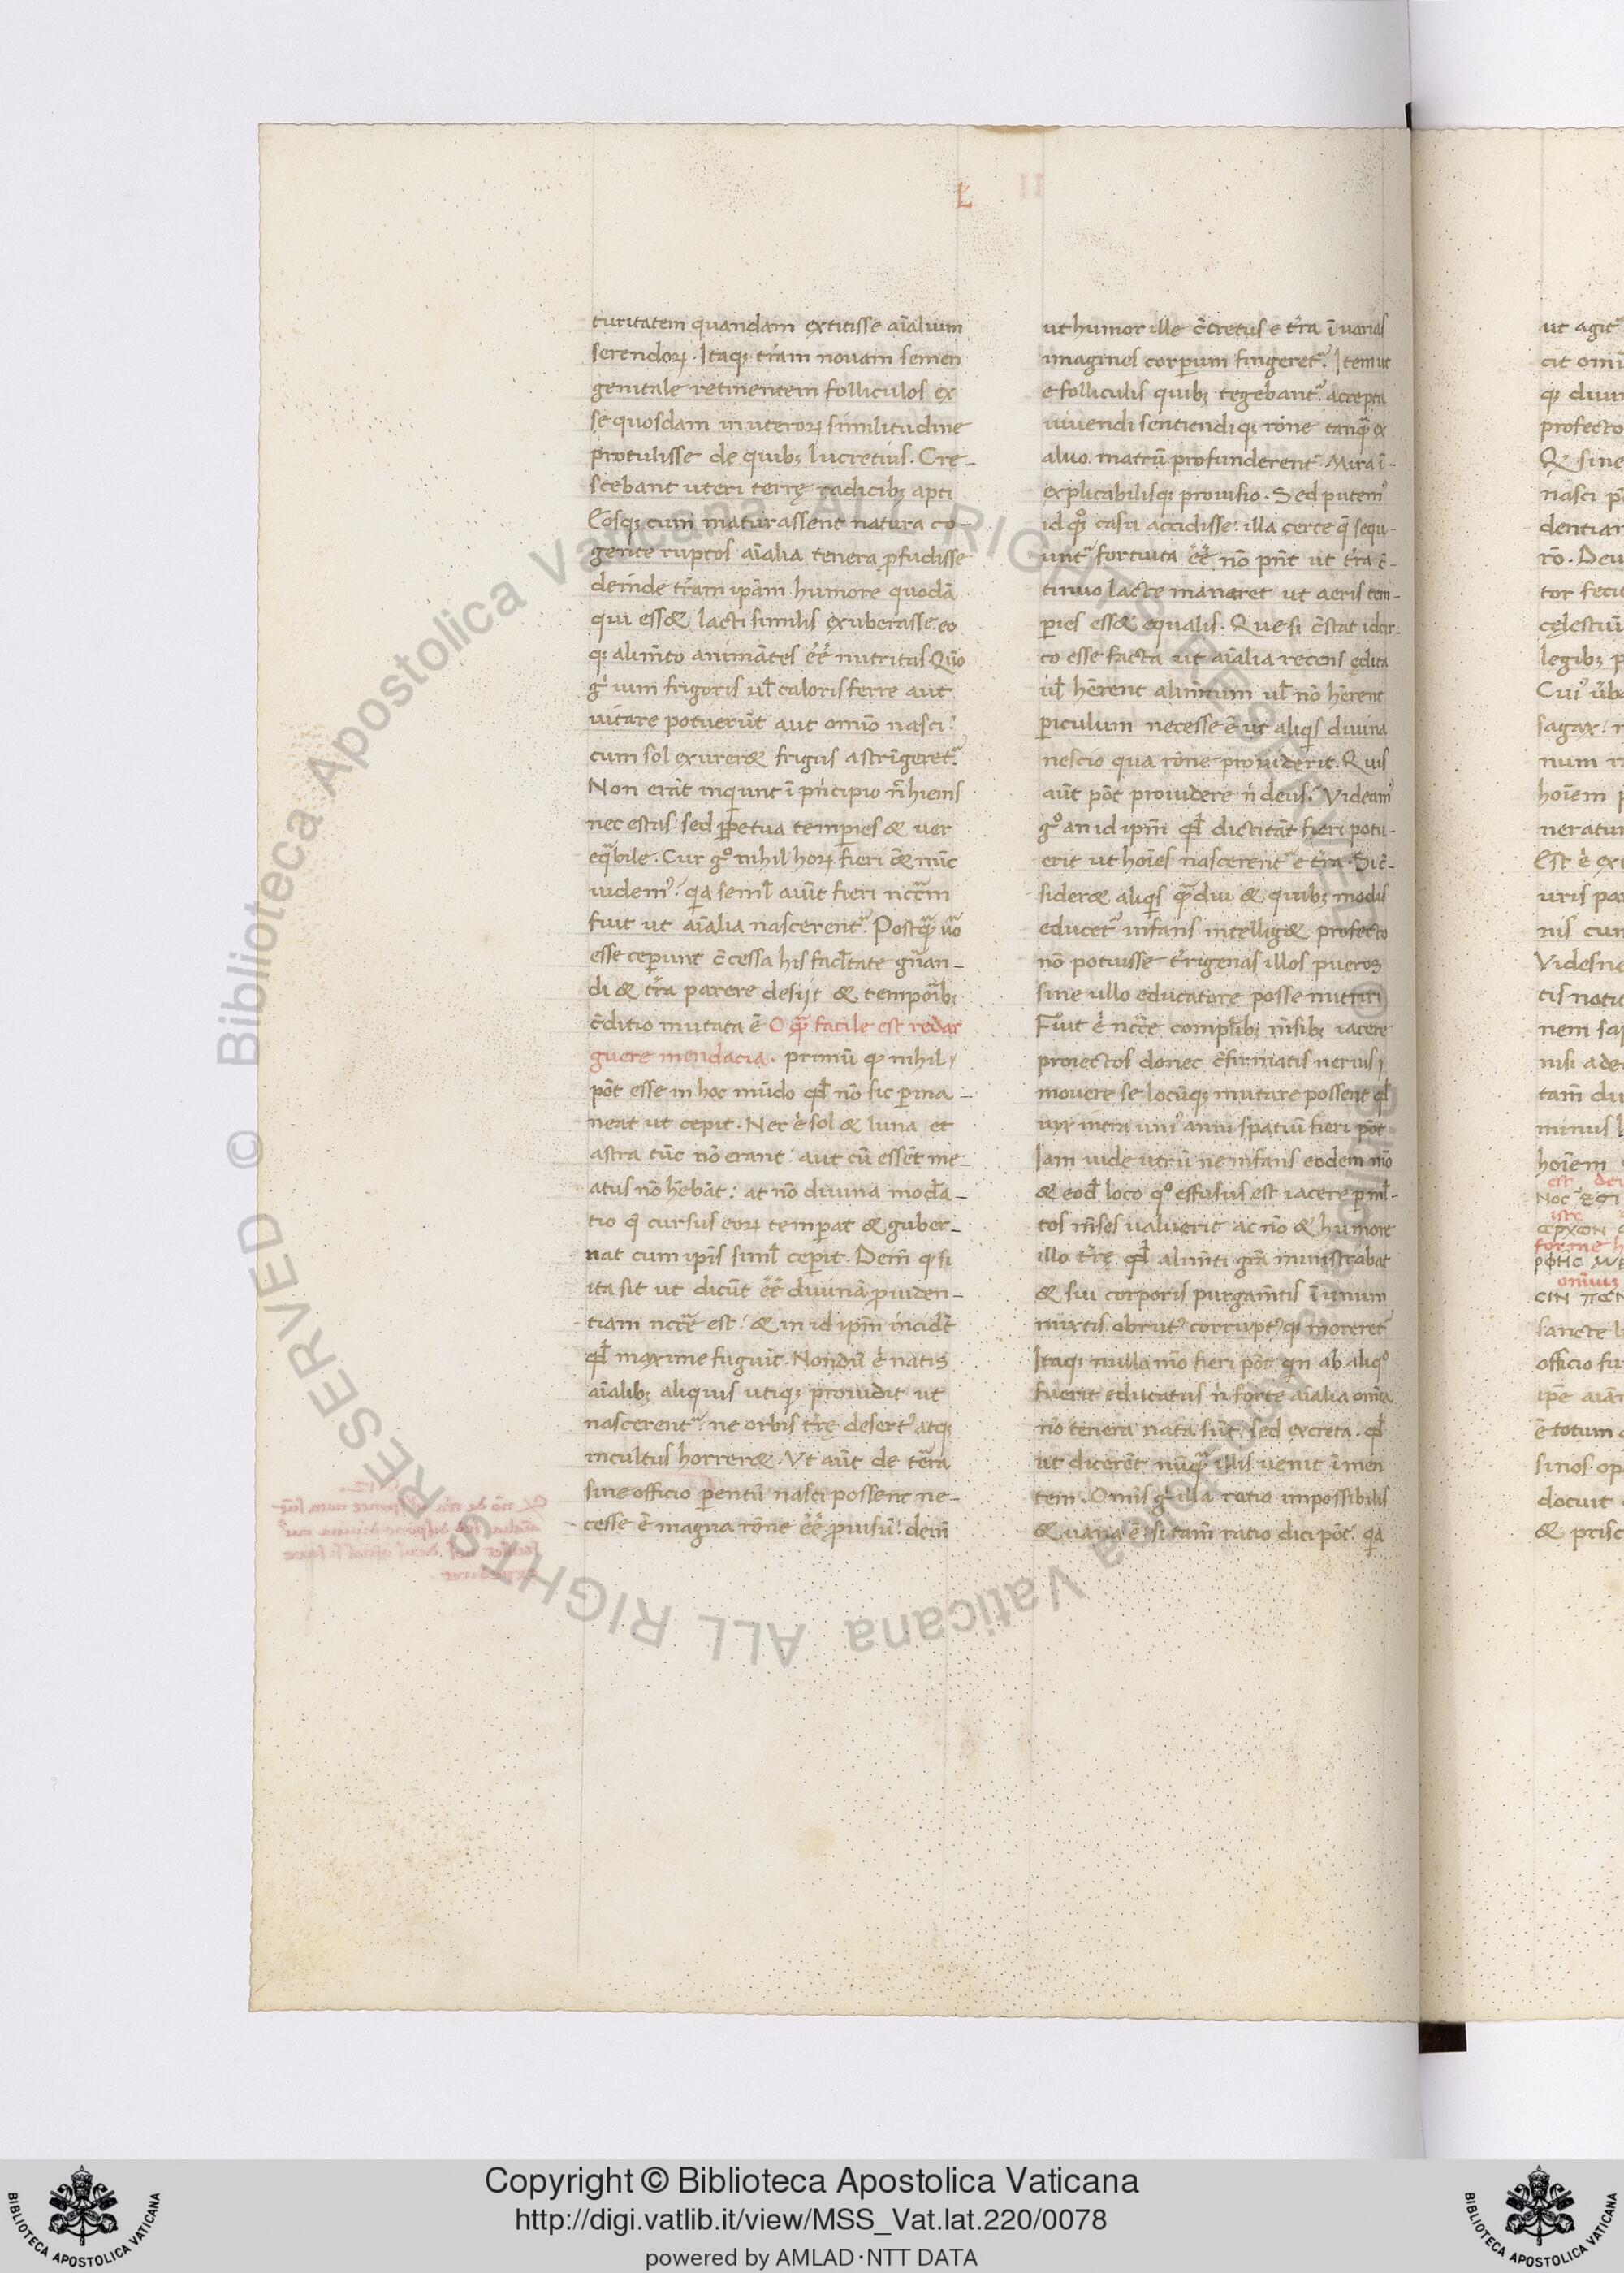 L II
turitatem quandam extitisse aĩalium
serendoꝝ. Itaqꝫ tr̃am nouam semen
genitale retinentem folliculos ex
se quosdam in uteroꝝ similitudine
protulisse de quibꝫ lucretius. Cre-
scebant uteri terrę radicibꝫ apti
Eosqꝫ cum maturassent natura co-
gente ruptos aĩalia tenera ꝓfudisse
deinde tr̃am ip̃am humore quodã
qui esset lacti similis exuberasse. eo
qꝫ alim̃to animãtes eẽ nutritas Qũo
gͥ uim frigoris ul̃ caloris ferre aut
uitare potuerũt aut om̃o nasci?
cum sol exureret frigus astrĩgeret᷑.
Non erãt inqͥunt ĩ prĩcipio ñ hiems
nec estas sed ꝑpetua temperies & uer
eqͣbile. Cur gͦ nihil hoꝝ fieri & nũc
uidemꝰ? qͥa semel̃ aiũt fieri nccͣm
fuit ut aĩalia nascerent᷑. Postqͣꝫ ũo
esse ceperunt c̃cessa his facl̃tate gñan-
di & tr̃a parere desijt & tempoͣibꝫ
c̃ditio mutata ẽ O qͣꝫ facile est redar
guere mendacia. primũ qꝫ nihil
põt esse in hoc mũdo qd̃ nõ sic ꝑma-
neat ut cepit. Nec ẽ sol & luna et
astra tũc nõ erant. aut cũ essẽt me-
atus nõ hẽbãt: at nõ diuina mod̃a-
tio q̃ cursus eoꝝ temꝑat & guber-
nat cum ip̃is siml̃ cepit. Deñ qꝫ si
ita sit ut dicũt eẽ diuinã ꝓuiden-
tiam nccẽ est: & in id ip̃m incidẽt
qd̃ maxime fugiũt. Nondũ ẽ natis
aĩalibꝫ aliquis utiqꝫ prouidit ut
nascerent᷑. ne orbis tr̃ę desertꝰ atqꝫ
incultus horreret. Vt aũt de terͣa
sine officio ꝑentũ nasci possent ne-
cesse ẽ magna rõne eẽ ꝓuisũ: deiñ
ut humor ille c̃cretus e tr̃a ĩ uarias
imagines corꝑum fingeret᷑. Item ut
e folliculis quibꝫ tegebant᷑. accepta
uiuendi sentiendiqꝫ rõne tanqͣꝫ ex
aluo matrũ profunderent᷑. Mira ĩ-
explicabilisqꝫ prouisio. Sed putemꝰ
id qͦꝫ casu accidisse: illa certe q̃ sequ-
unt᷑ fortuita eẽ nõ pñt ut tr̃a c̃-
tinuo lacte manaret ut aeris tem-
peries esset equalis. Que si c̃stat idcir-
co esse facta ut aĩalia recens ędita
ul̃ hẽrent alim̃tum ul̃ nõ hẽrent
periculum necesse ẽ ut aliqͥs diuina
nescio qua rõne prouiderit. Quis
aũt põt prouidere ñ deus? Videamꝰ
gͦ an id ip̃m qd̃ dictitãt fieri potu-
erit ut hoĩes nascerent᷑ e tr̃a. Si c̃-
sideret aliqͥs qͣꝫdiu & quibꝫ modis
educet᷑ infans intelliget profecto
nõ potuisse tr̃rigenas illos pueros
sine ullo educatore posse nutriri
Fuit ẽ nccẽ compl̃ibꝫ m̃sibꝫ iacere
proiectos donec c̃firmatis neruis
mouere se locũqꝫ mutare possent qd̃
uix intra uniꝰ anni spatiũ fieri põt
Iam uide utrũ ne infans eodem mõ
& eod̃ loco qͦ effusus est iacere ꝑ ml̃-
tos m̃ses ualuerit ac nõ & humore
illo tr̃ę qd̃ alim̃ti grã ministrabat
& sui corporis purgam̃tis ĩ unum
mixtis obrutꝰ corruptꝰqꝫ moreret᷑
Itaqꝫ nullo mõ fieri põt qͥn ab aliqͦ
fuerit educatus ñ forte aĩalia om̃ia
nõ tenera nata sũt sed excreta. qd̃
ut dicerẽt nũqͣꝫ illis uenit ĩ men
tem. Om̃is gͥ illa ratio impossibilis
& uana ẽ: si tam̃ ratio dici põt. qͥa
ut agit
cit om
qꝫ diui
profecto
Q sine
nasci
dentiar
rõ. Deu
tor feci
cęlestiũ
legibꝫ
Cuiꝰ
sagax
num
hoĩem
neratu
Est ẽ ex
uris pa
nis cum
Videsne
tis noti
nem sa
nisi a de
tam̃ du
minus
hoĩem
sancte
officio fu
ip̃e aiã
ẽ totum
sinos op
docuit
& prisc
Copyright © Biblioteca Apostolica Vaticana
http://digi.vatlib.it/view/MSS_Vat.lat.220/0078
powered by AMLAD·NTT DATA
BIBLIOTECA APOSTOLICA VATICANA
BIBLIOTECA APOSTOLICA VATICANA